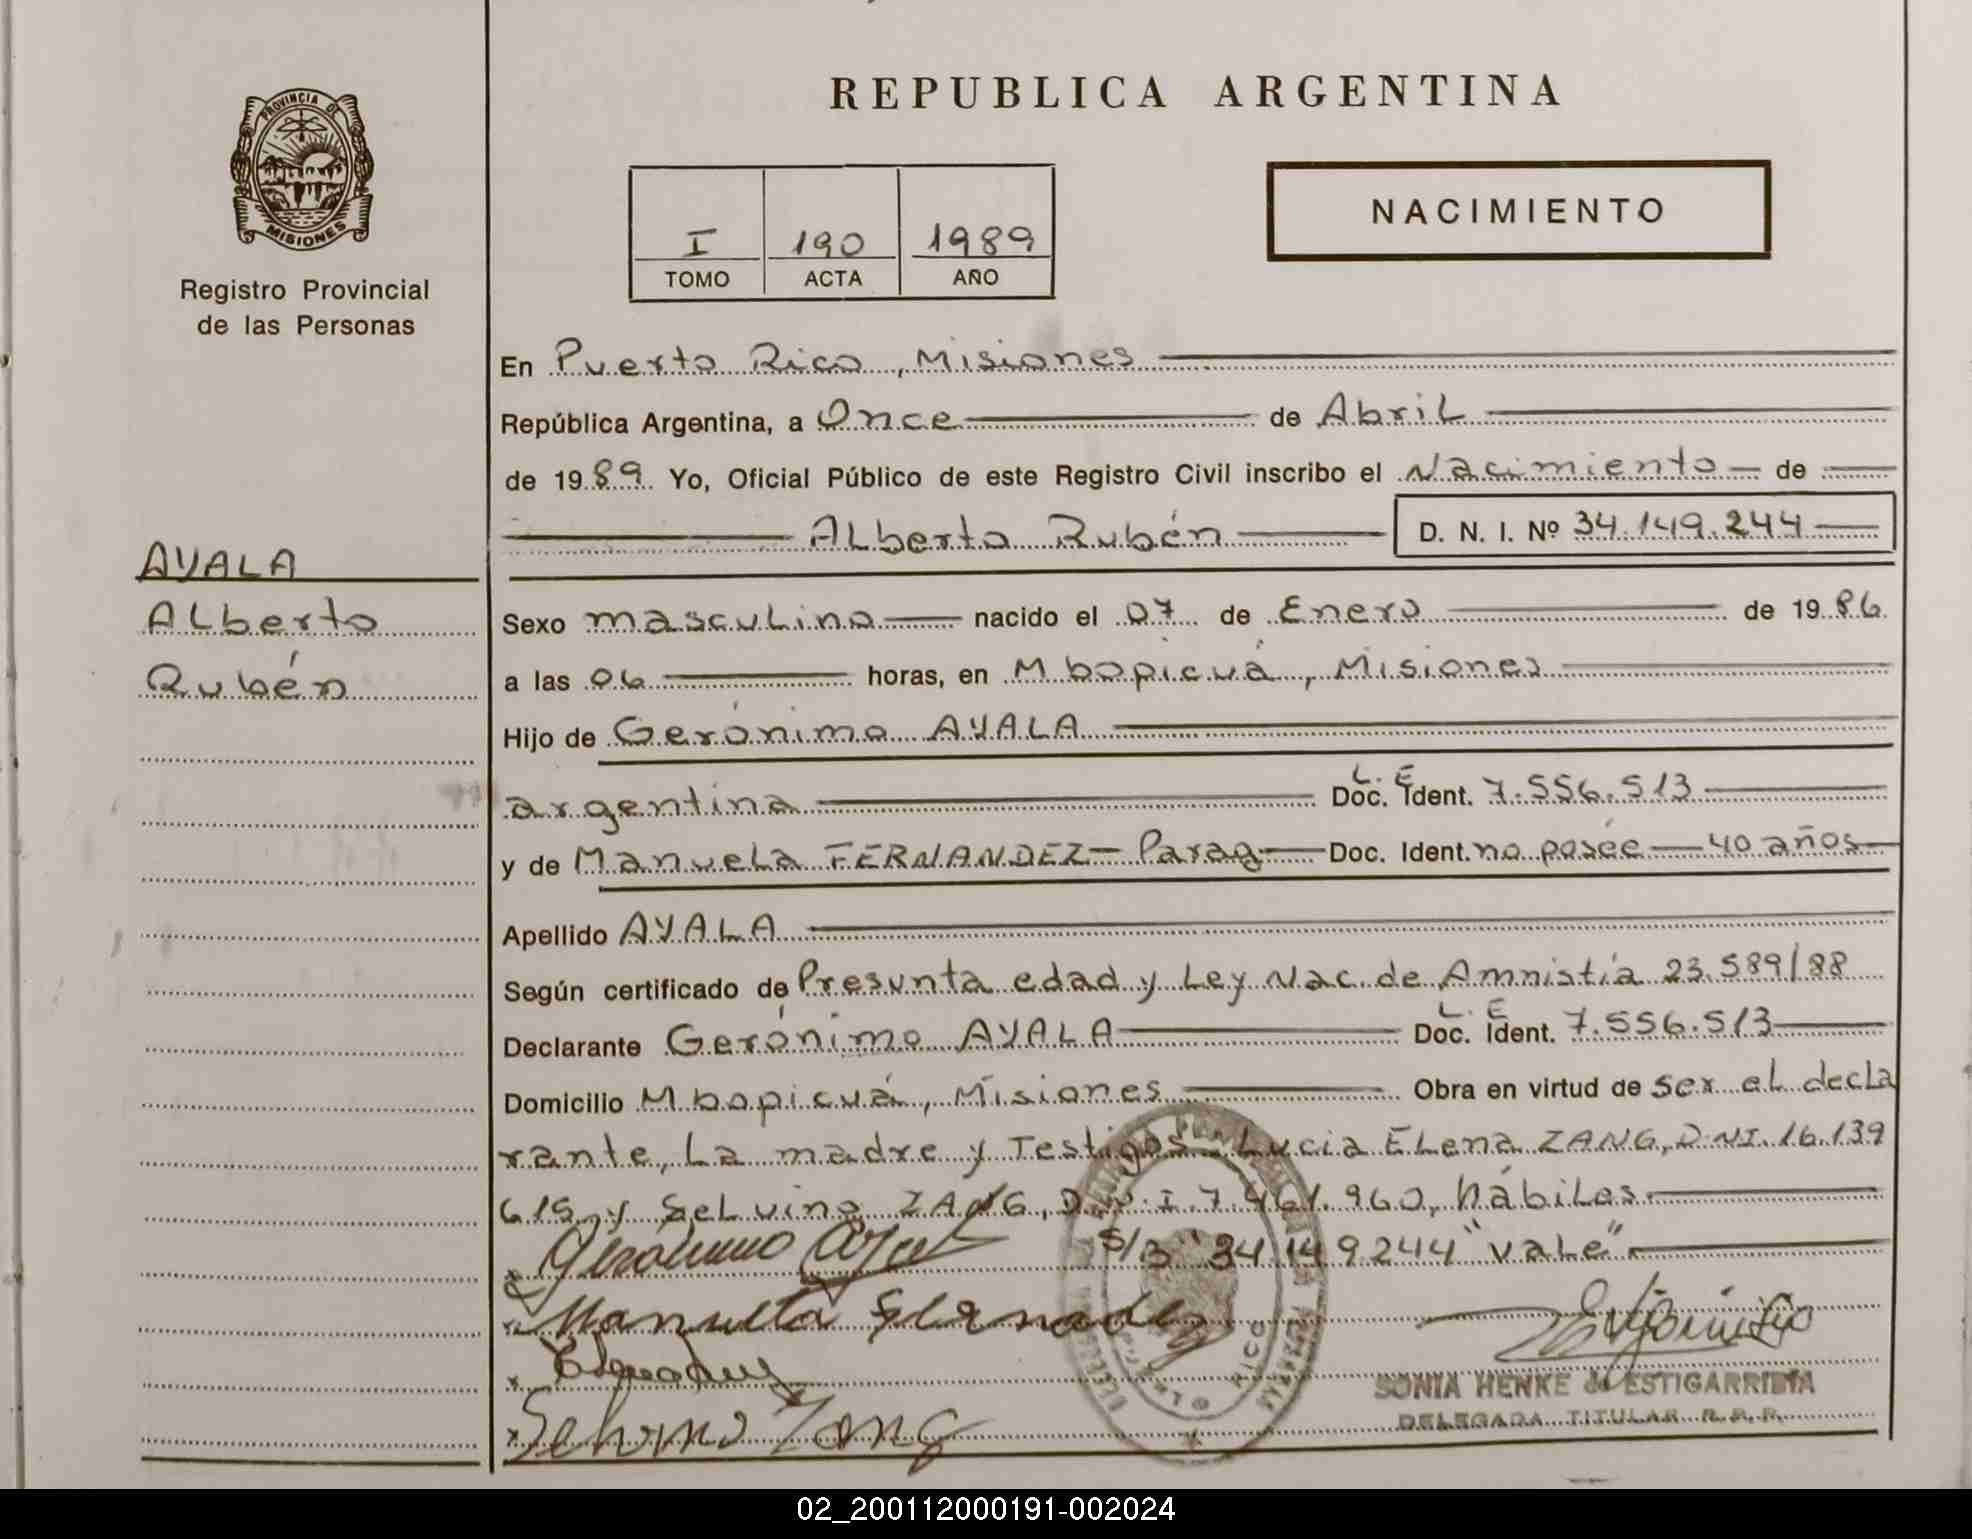 REPUBLICA ARGENTINA
PROVINCIA DE
MISIONES
Registro Provincial
de las Personas
I 190 1989
TOMO ACTA AÑO
NACIMIENTO
En Puerto Rico, Misiones
República Argentina, a Once de Abril
de 1989 Yo, Oficial Público de este Registro Civil inscribo el Nacimiento de
Alberto Rubén D. N. I. Nº 34.149.244
AYALA
Alberto
Rubén
Sexo masculino nacido el 07 de Enero de 1986
a las 06 horas, en Mbopicuá, Misiones
Hijo de Gerónimo AYALA
argentina L. E Doc. Ident. 7.556.513
y de Manuela FERNANDEZ - Parag Doc. Ident. no posée 40 años
Apellido AYALA
Según certificado de Presunta edad y Ley Nac. de Amnistía 23.589/88
Declarante Gerónimo AYALA L. E Doc. Ident. 7.556.513
Domicilio Mbopicuá, Misiones Obra en virtud de ser el decla
rante, La madre y Testigos Lucia Elena ZANG, D.NI. 16.139
615 y Selvino ZANG, D.N.I 7.461.960, hábiles
S/B "34.149.244" vale".
Manuela
Selvino Zang
RICO
SONIA HENKE de ESTIGARRIBIA
DELEGADA TITULAR R.P.P.
02_200112000191-002024